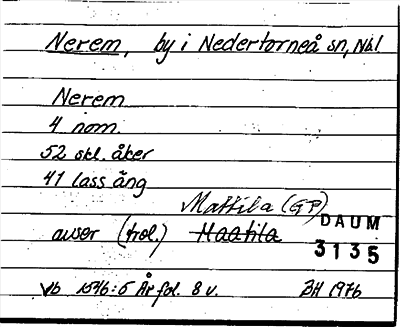 Nerem, by i Nedertorneå sn, Nbl.
Nerem
4 nom.
52 skl. åker
41 lass äng
Mattila (GP)
avser (trol.) Maatila
DAUM
3135
Vb 1546:5 År fol. 8 v. BH 1976